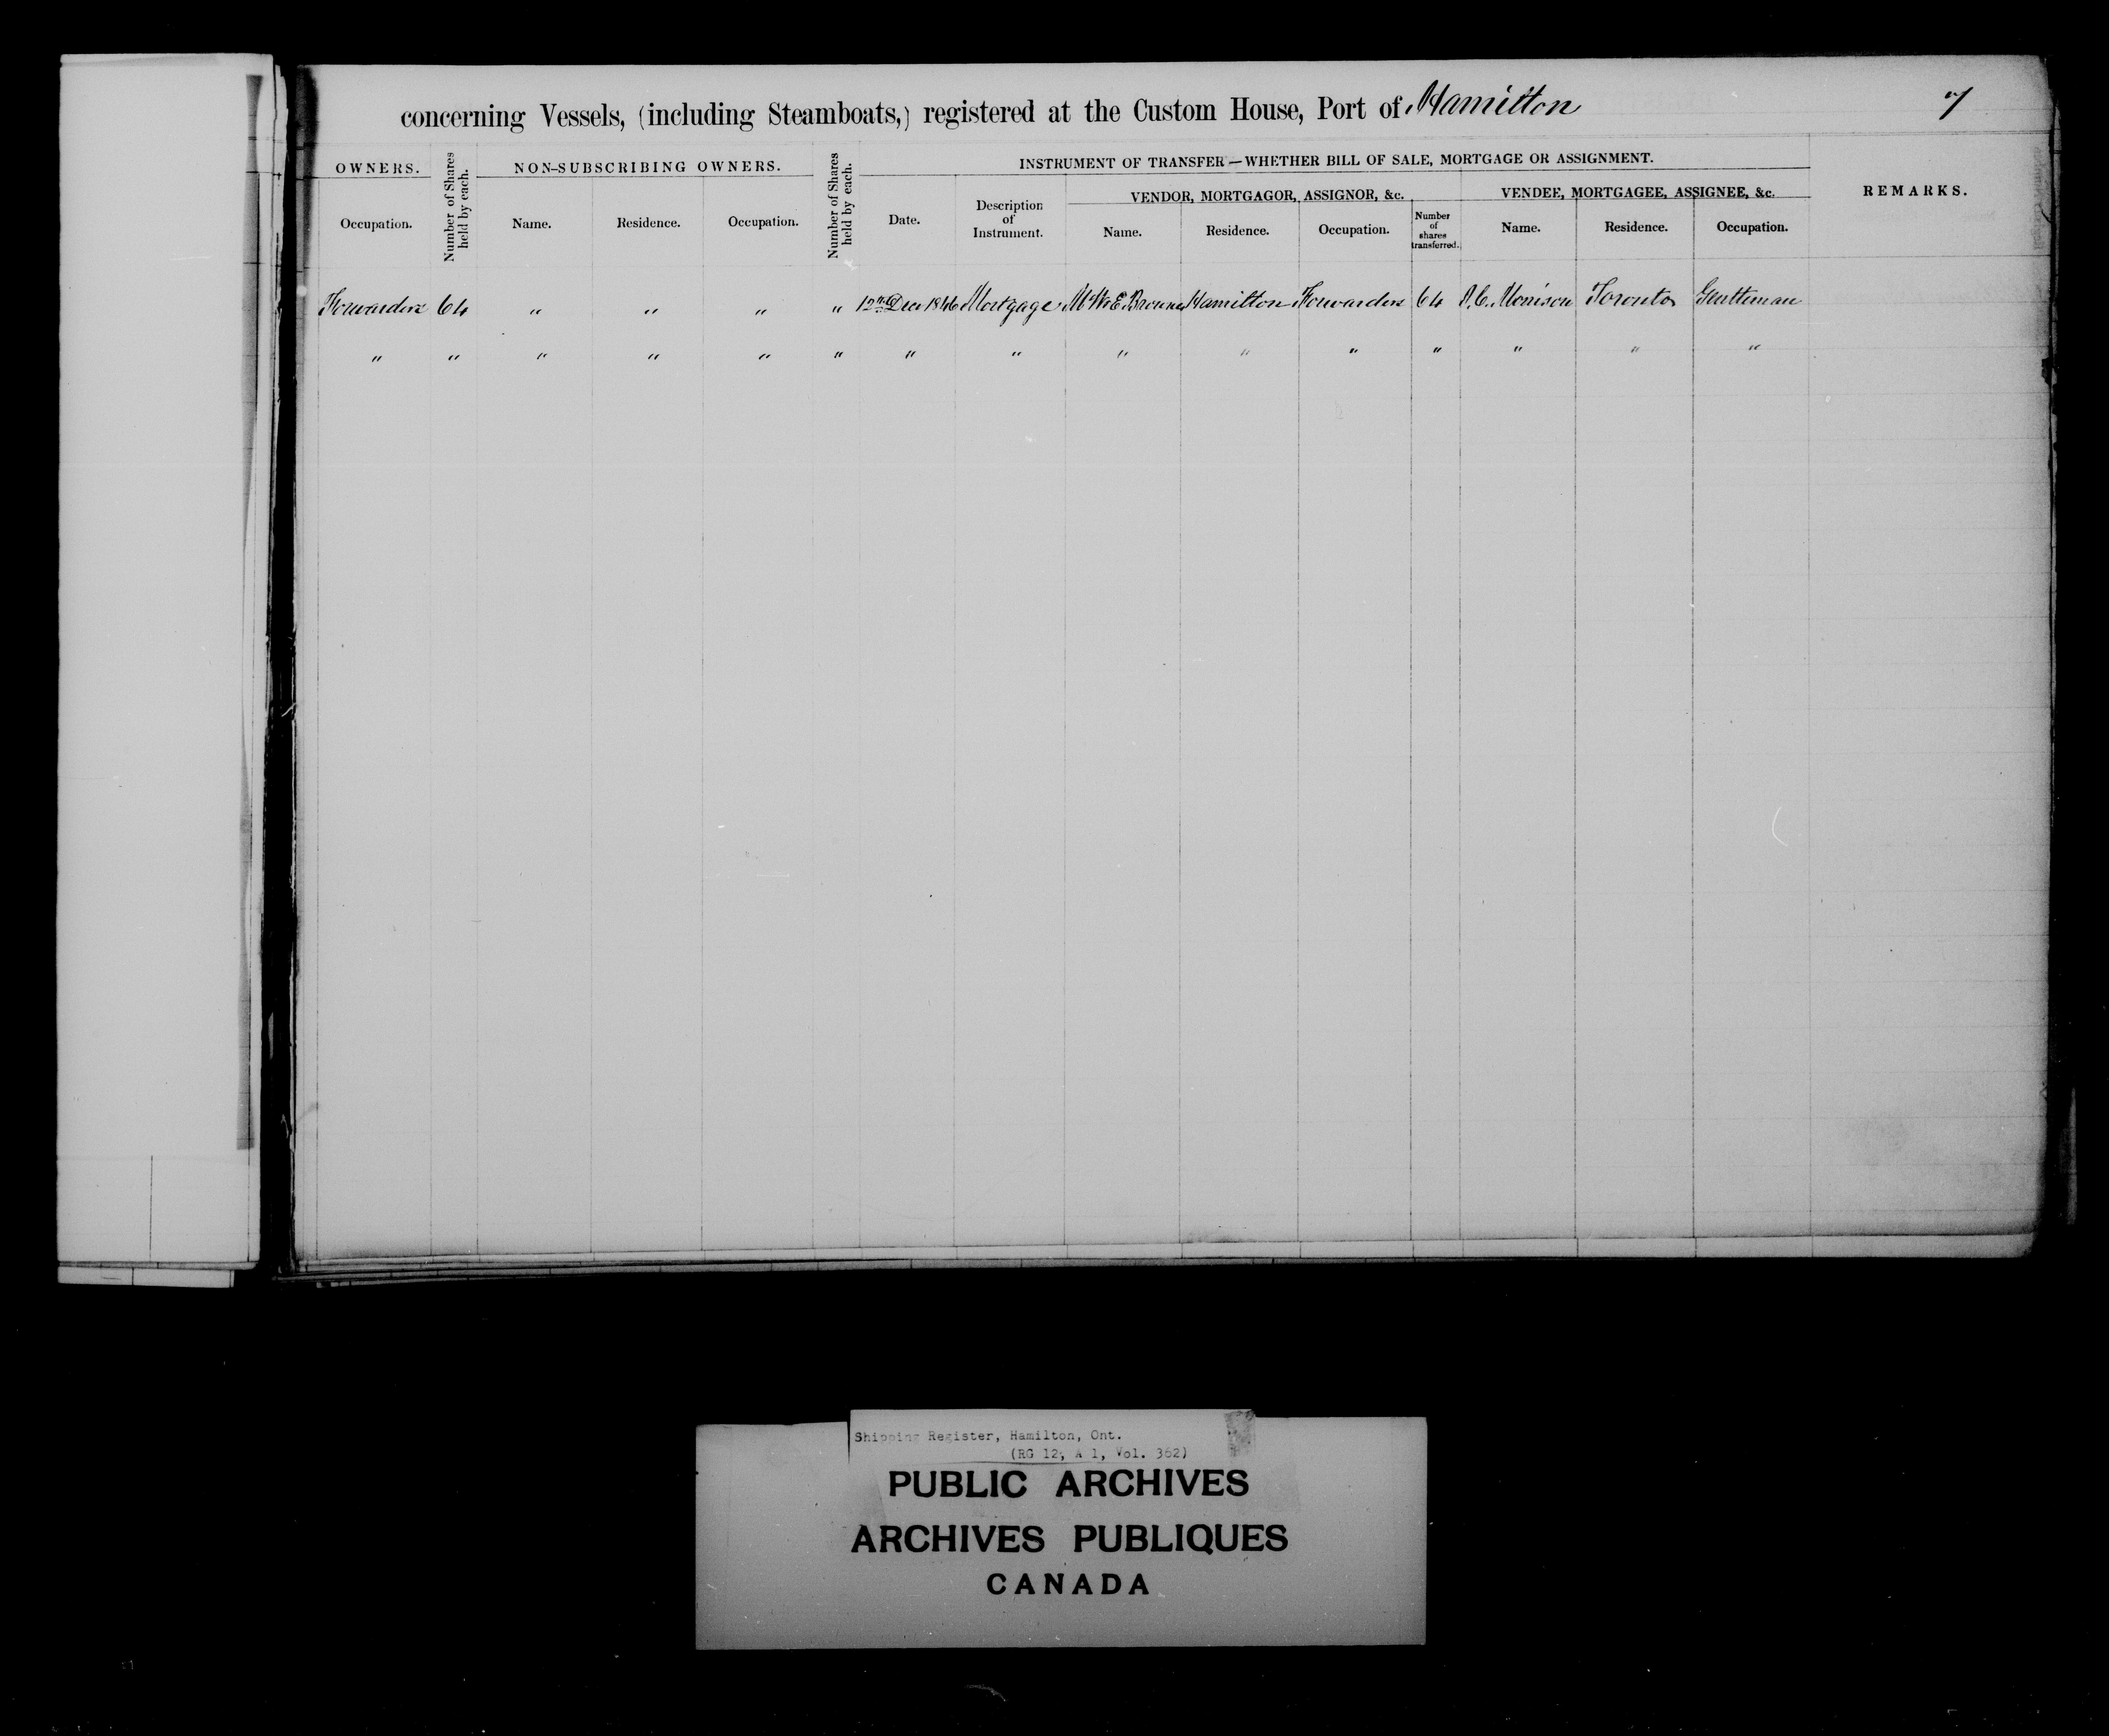 concerning Vessels, (including Steamboats,) registered at the Custom House, Port of Hamilton 7
OWNERS. Number of Shares held by each. NON-SUBSCRIBING OWNERS. Number of Shares held by each. INSTRUMENT OF TRANSFER—WHETHER BILL OF SALE, MORTGAGE OR ASSIGNMENT. REMARKS.
VENDOR, MORTGAGOR, ASSIGNOR, &c. VENDEE, MORTGAGEE, ASSIGNEE, &c.
Occupation. Name. Residence. Occupation. Date. Description of Instrument. Name. Residence. Occupation. Number of shares transferred. Name. Residence. Occupation.
Forwarders 64 " " " " 12th Dec 1846 Mortgage M W & E Browne Hamilton Forwarders 64 J.C. Morrison Toronto Gentleman
" " " " " " " " " " " " " " "
Shipping Register, Hamilton, Ont.
(RG 12, A 1, Vol. 362)
PUBLIC ARCHIVES
ARCHIVES PUBLIQUES
CANADA